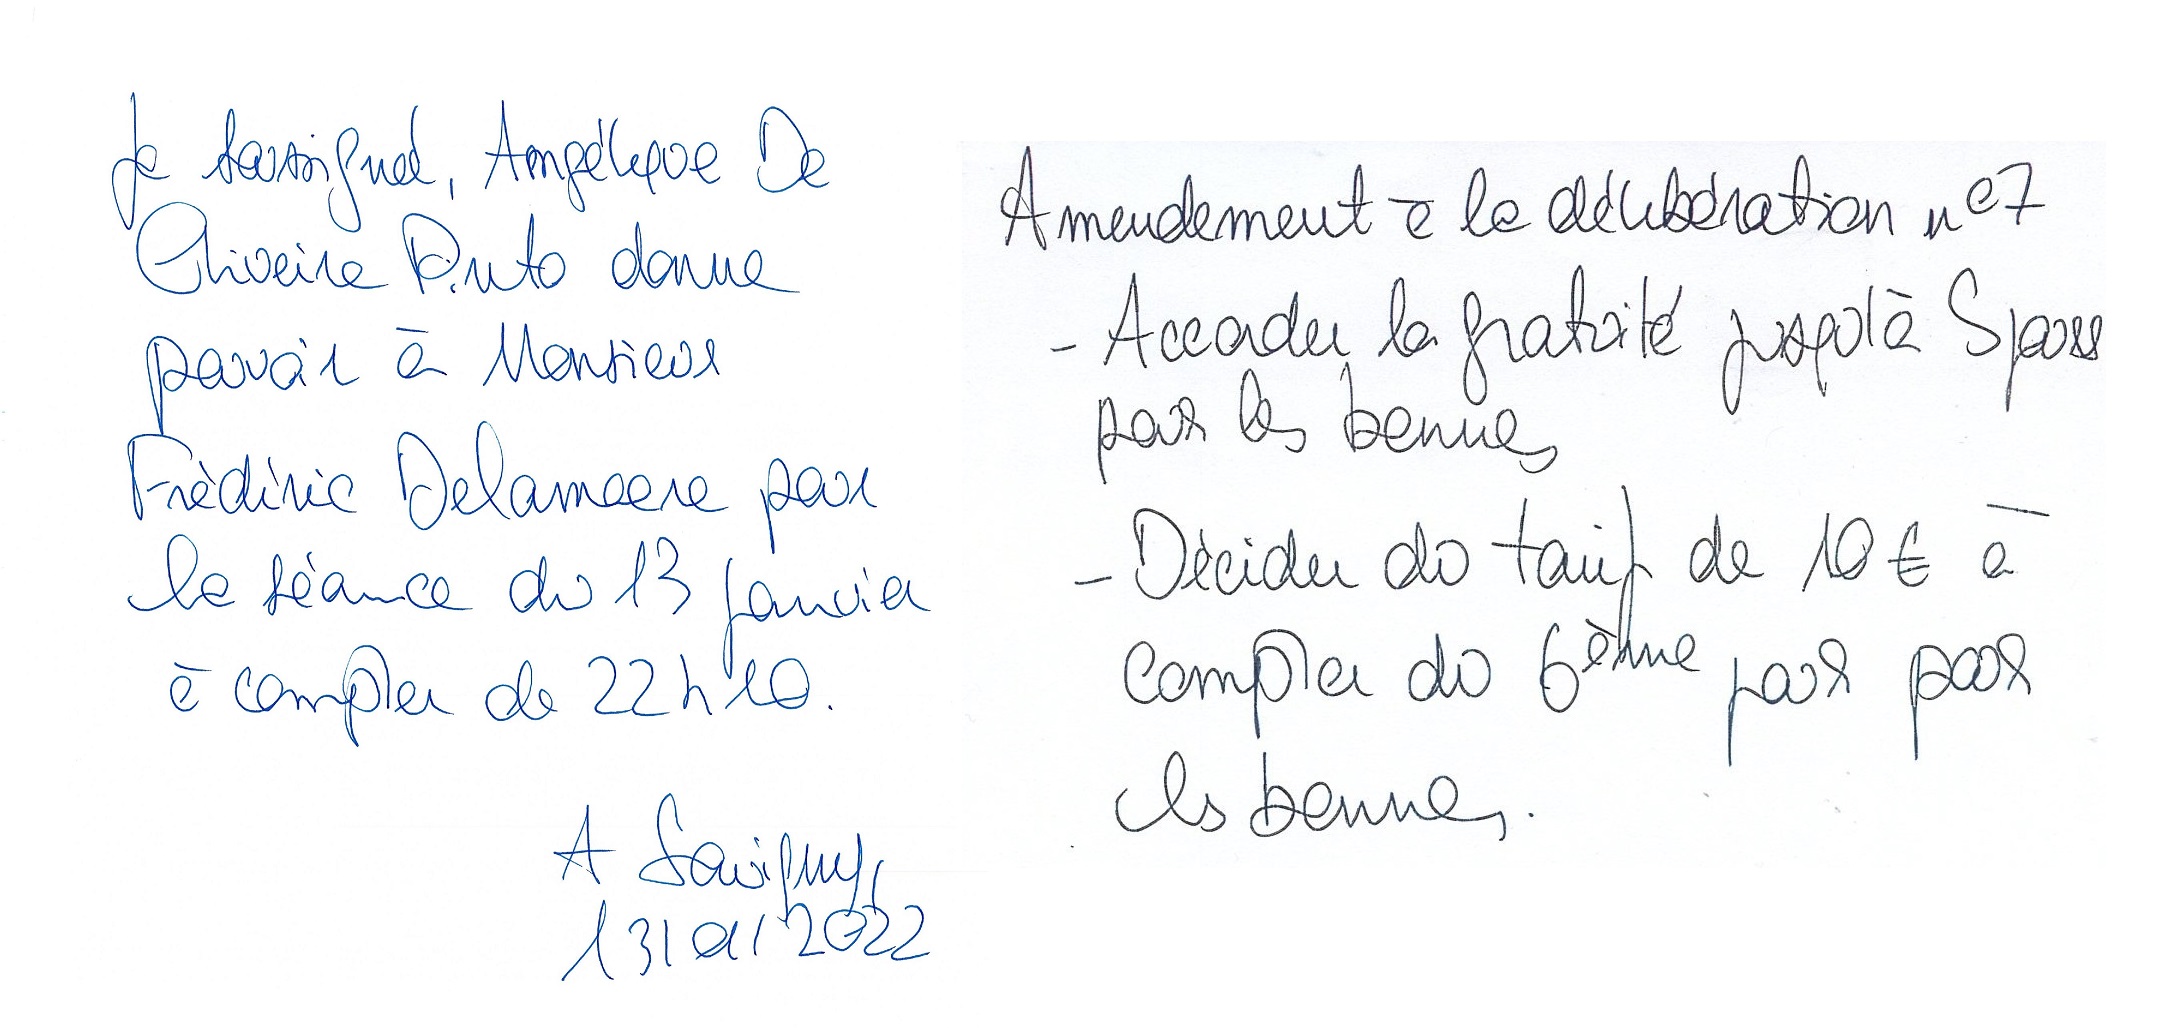 Je soussigné, Angélique De
Oliveira Pinto donne
pouvoir à Monsieur
Frédéric Delameere pour
la séance du 13 janvier
à compter de 22h10.
A Savigny,
13/01/2022
Amendement à la délibération n°7
- Accorder la gratuité jusqu'à 5 jours
pour les bennes
- Décider du tarif de 10 € à
compter du 6ème jour pour
les bennes.